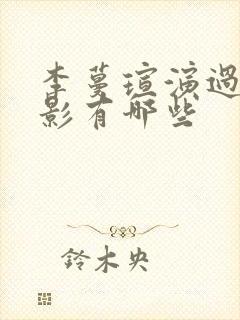 李蔓瑄演過
影有哪些
鈴木央